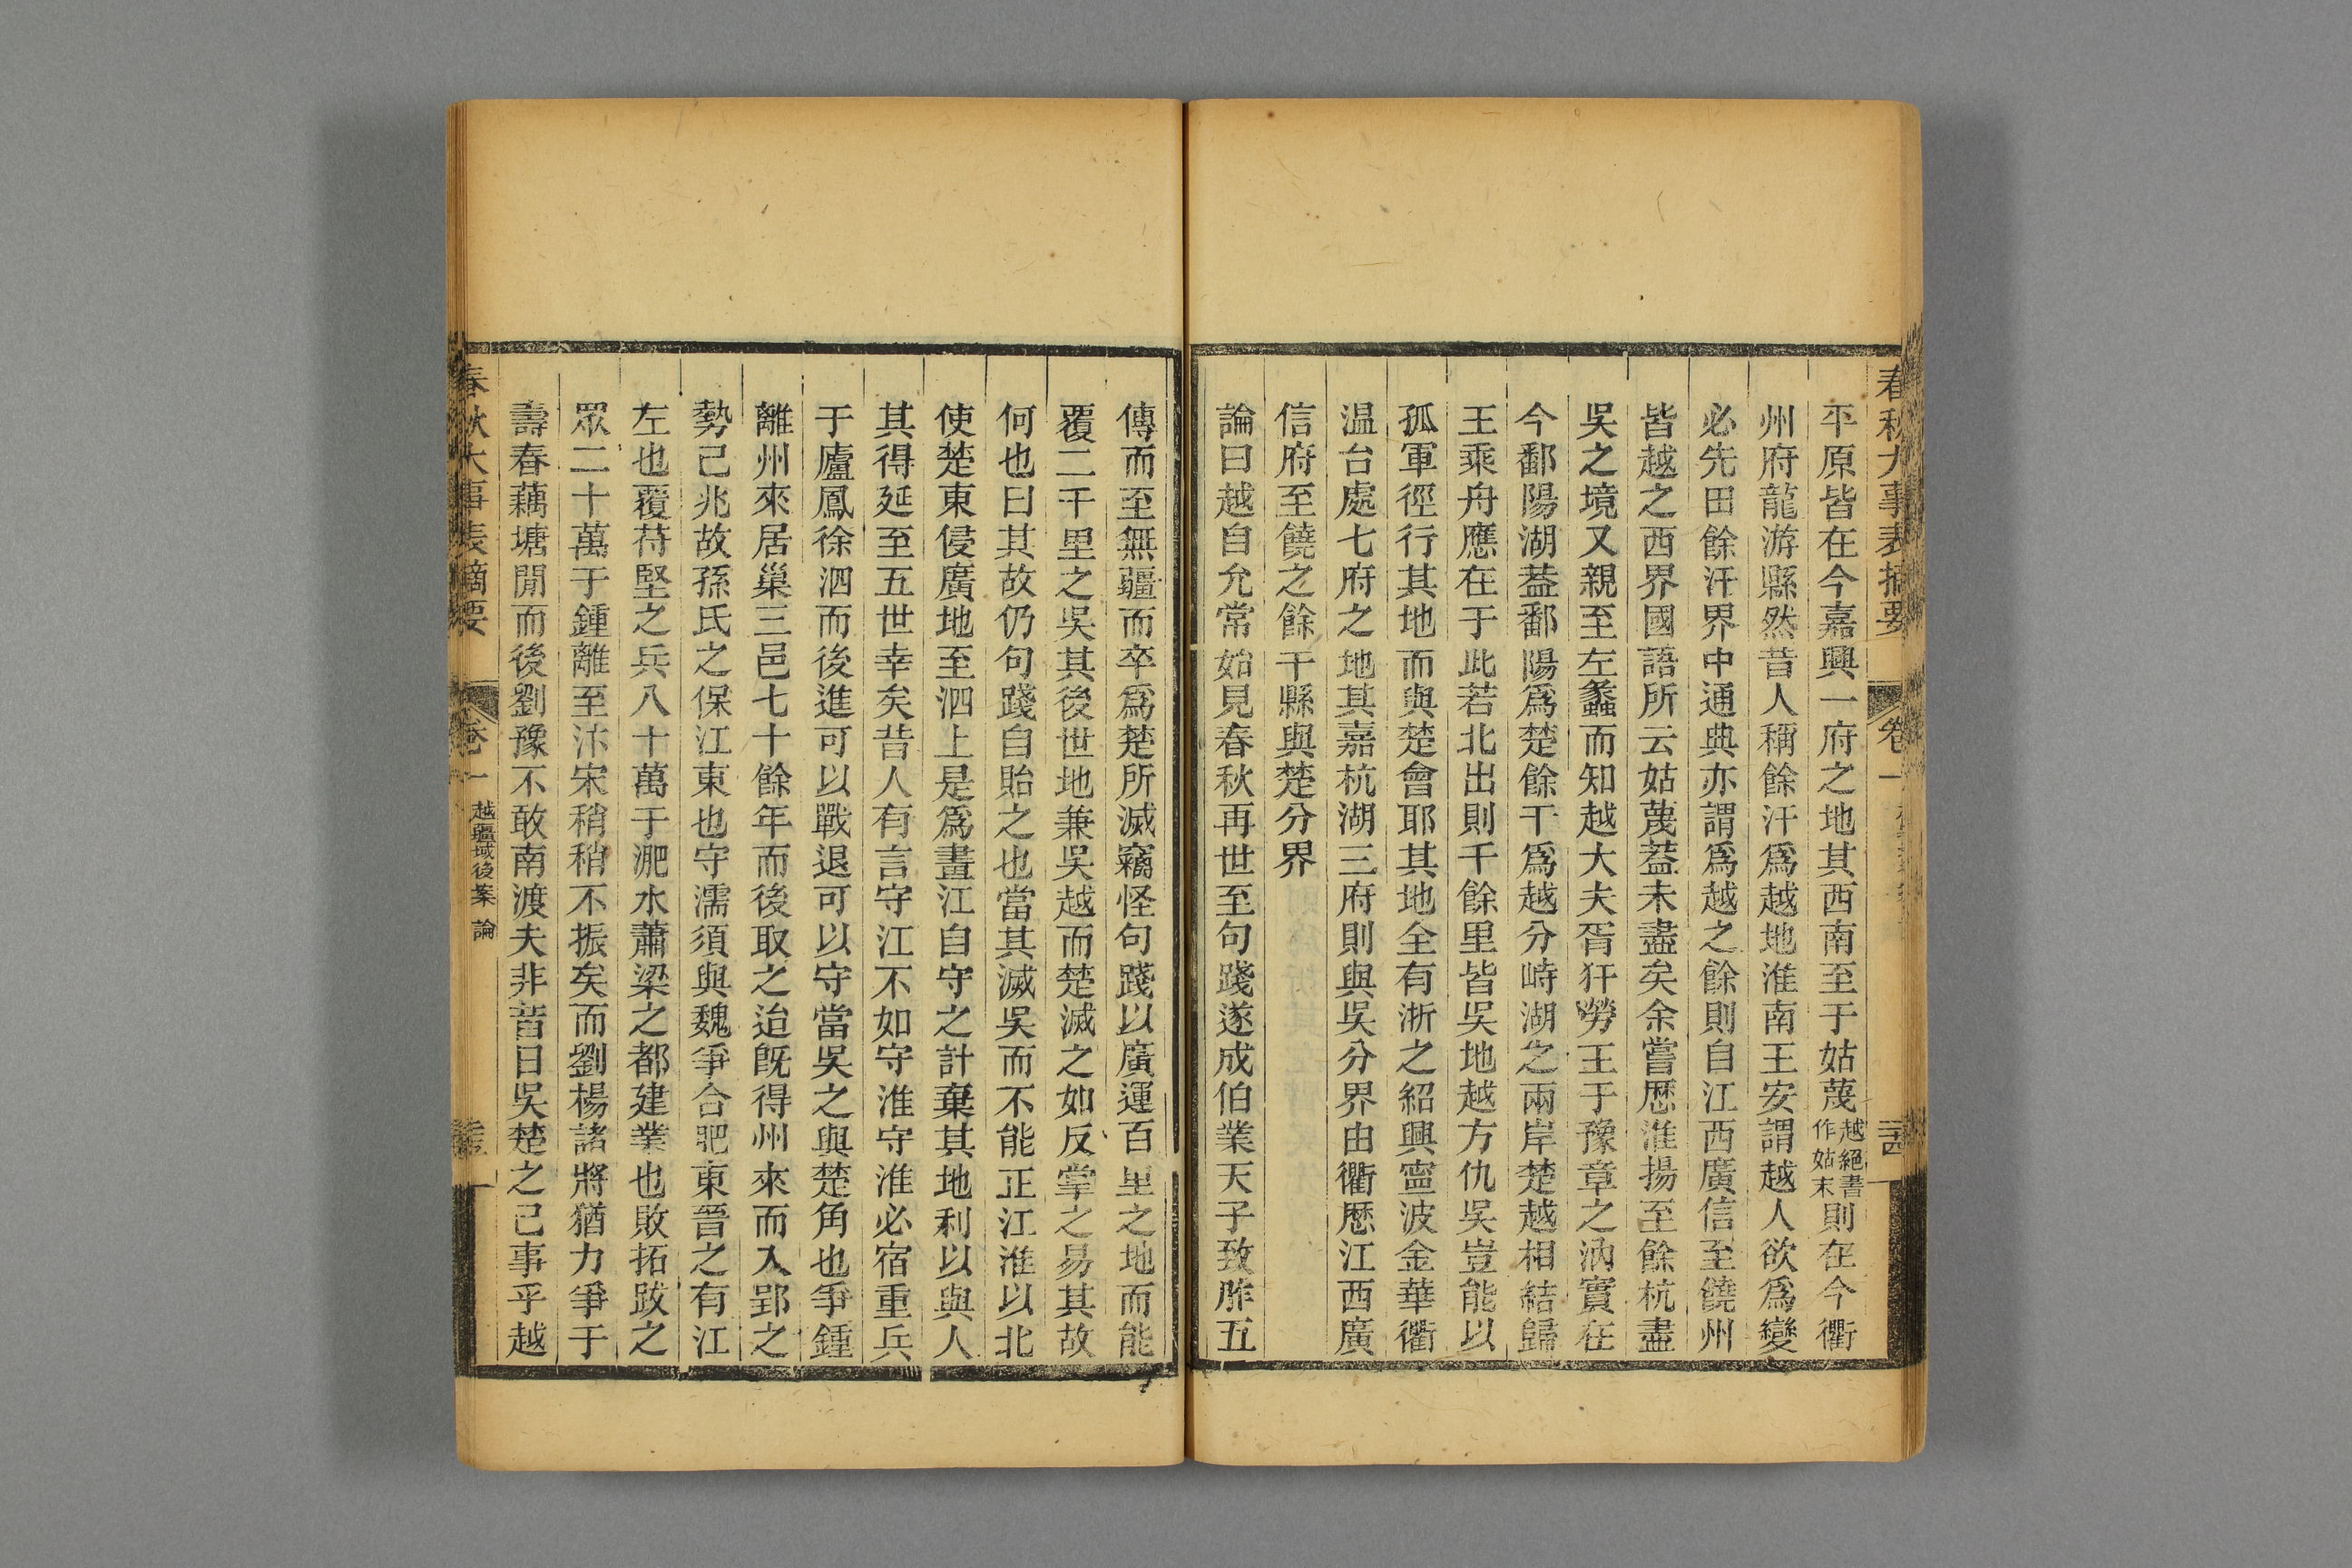 春秋大事表摘要
卷一
平原皆在今嘉興一府之地其西南至于姑蔑越絕書作姑末則在今衢
州府龍游縣然昔人稱餘汗爲越地淮南王安謂越人欲爲變
必先田餘汗界中通典亦謂爲越之餘則自江西廣信至饒州
皆越之西界國語所云姑蔑葢未盡矣余嘗歷淮揚至餘杭盡
吳之境又親至左蠡而知越大夫胥犴勞王于豫章之汭實在
今鄱陽湖葢鄱陽爲楚餘干爲越分峙湖之兩岸楚越相結歸
王乘舟應在于此若北出則千餘里皆吳地越方仇吳豈能以
孤軍徑行其地而與楚會耶其地全有浙之紹興寧波金華衢
温台處七府之地其嘉杭湖三府則與吳分界由衢歷江西廣
信府至饒之餘干縣與楚分界
論曰越自允常始見春秋再世至句踐遂成伯業天子致胙五
傳而至無疆而卒爲楚所滅竊怪句踐以廣運百里之地而能
覆二千里之吳其後世地兼吳越而楚滅之如反掌之易其故
何也曰其故仍句踐自貽之也當其滅吳而不能正江淮以北
使楚東侵廣地至泗上是爲畫江自守之計棄其地利以與人
其得延至五世幸矣昔人有言守江不如守淮守淮必宿重兵
于廬鳳徐泗而後進可以戰退可以守當吳之與楚角也爭鍾
離州來居巢三邑七十餘年而後取之迨旣得州來而入郢之
勢已兆故孫氏之保江東也守濡須與魏爭合肥東晉之有江
左也覆苻堅之兵八十萬于淝水蕭梁之都建業也敗拓跋之
眾二十萬于鍾離至汴宋稍稍不振矣而劉楊諸將猶力爭于
壽春藕塘閒而後劉豫不敢南渡夫非昔日吳楚之已事乎越
春秋大事表摘要
卷一
越疆域後案 論